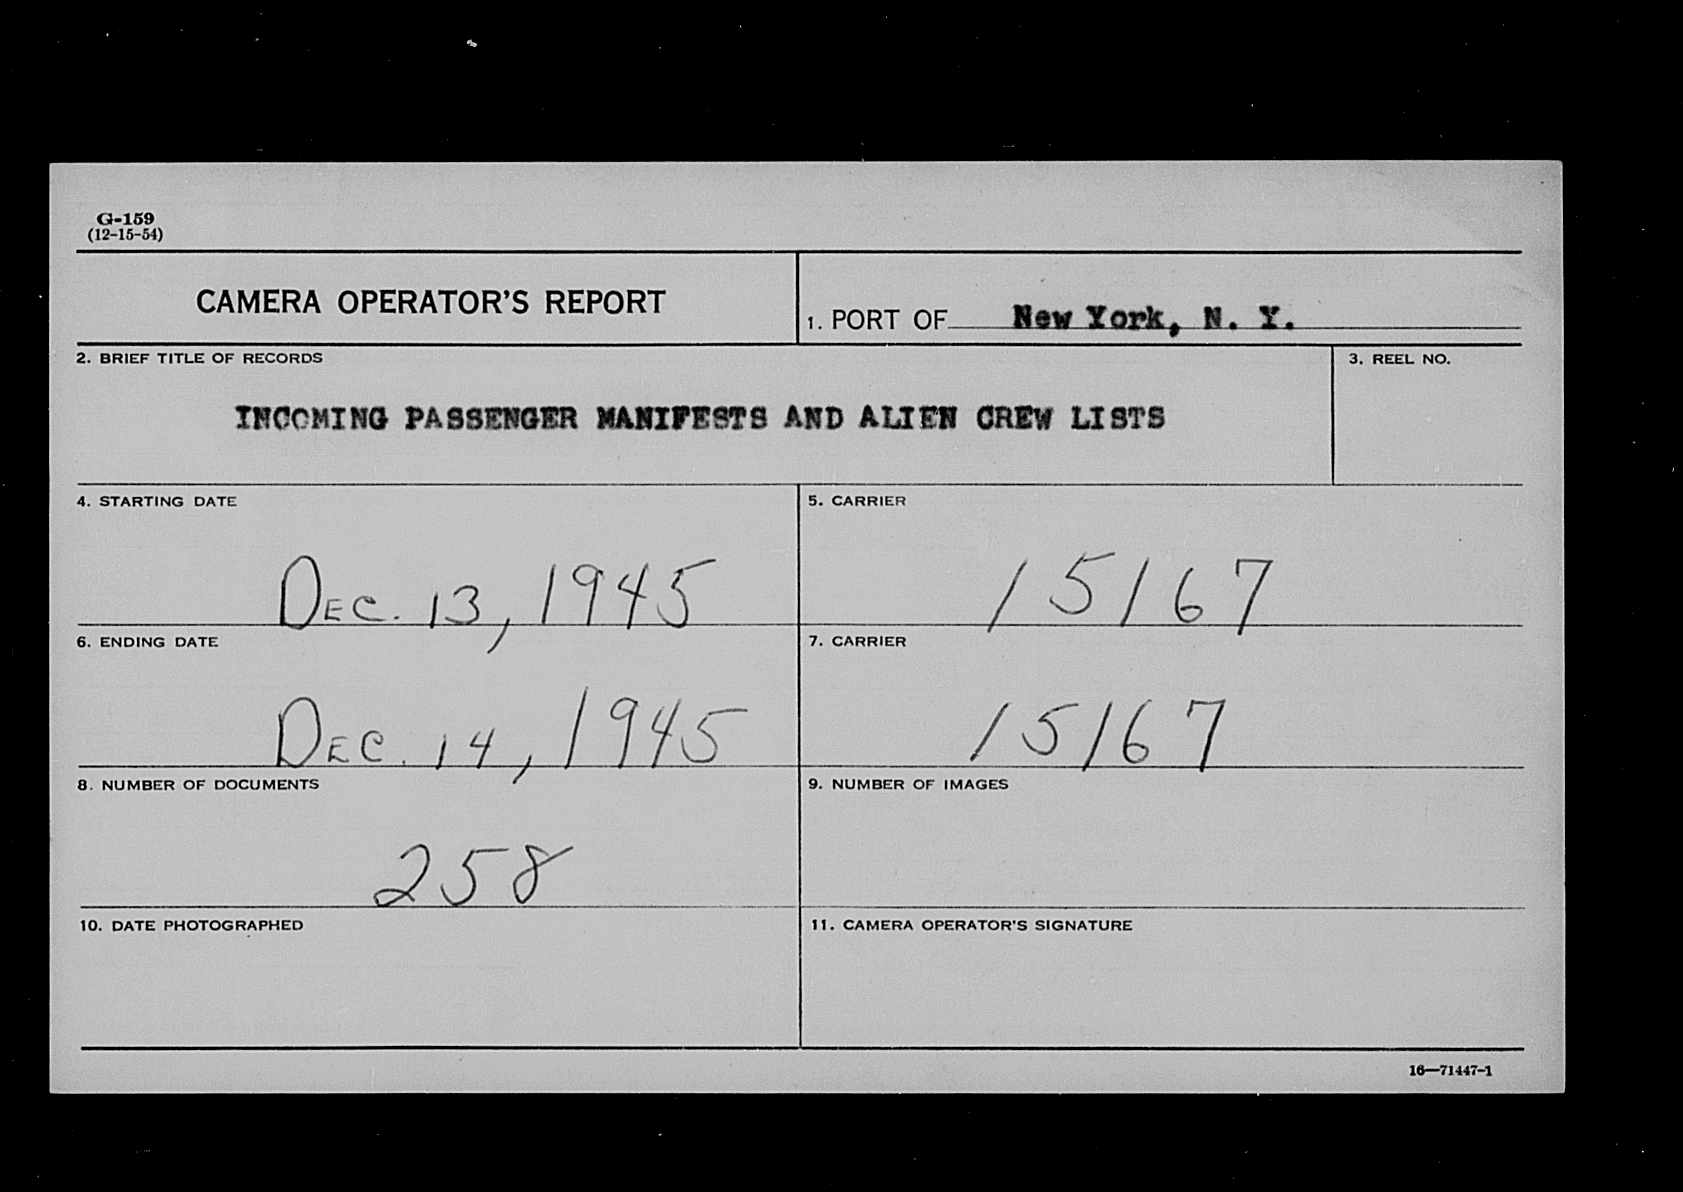 G-159
(12-15-54)
CAMERA OPERATOR'S REPORT
1. PORT OF New York, N. Y.
2. BRIEF TITLE OF RECORDS
3. REEL NO.
INCOMING PASSENGER MANIFESTS AND ALIEN CREW LISTS
4. STARTING DATE
5. CARRIER
DEC. 13, 1945
15167
6. ENDING DATE
7. CARRIER
DEC. 14, 1945
15167
8. NUMBER OF DOCUMENTS
9. NUMBER OF IMAGES
258
10. DATE PHOTOGRAPHED
11. CAMERA OPERATOR'S SIGNATURE
16—71447-1